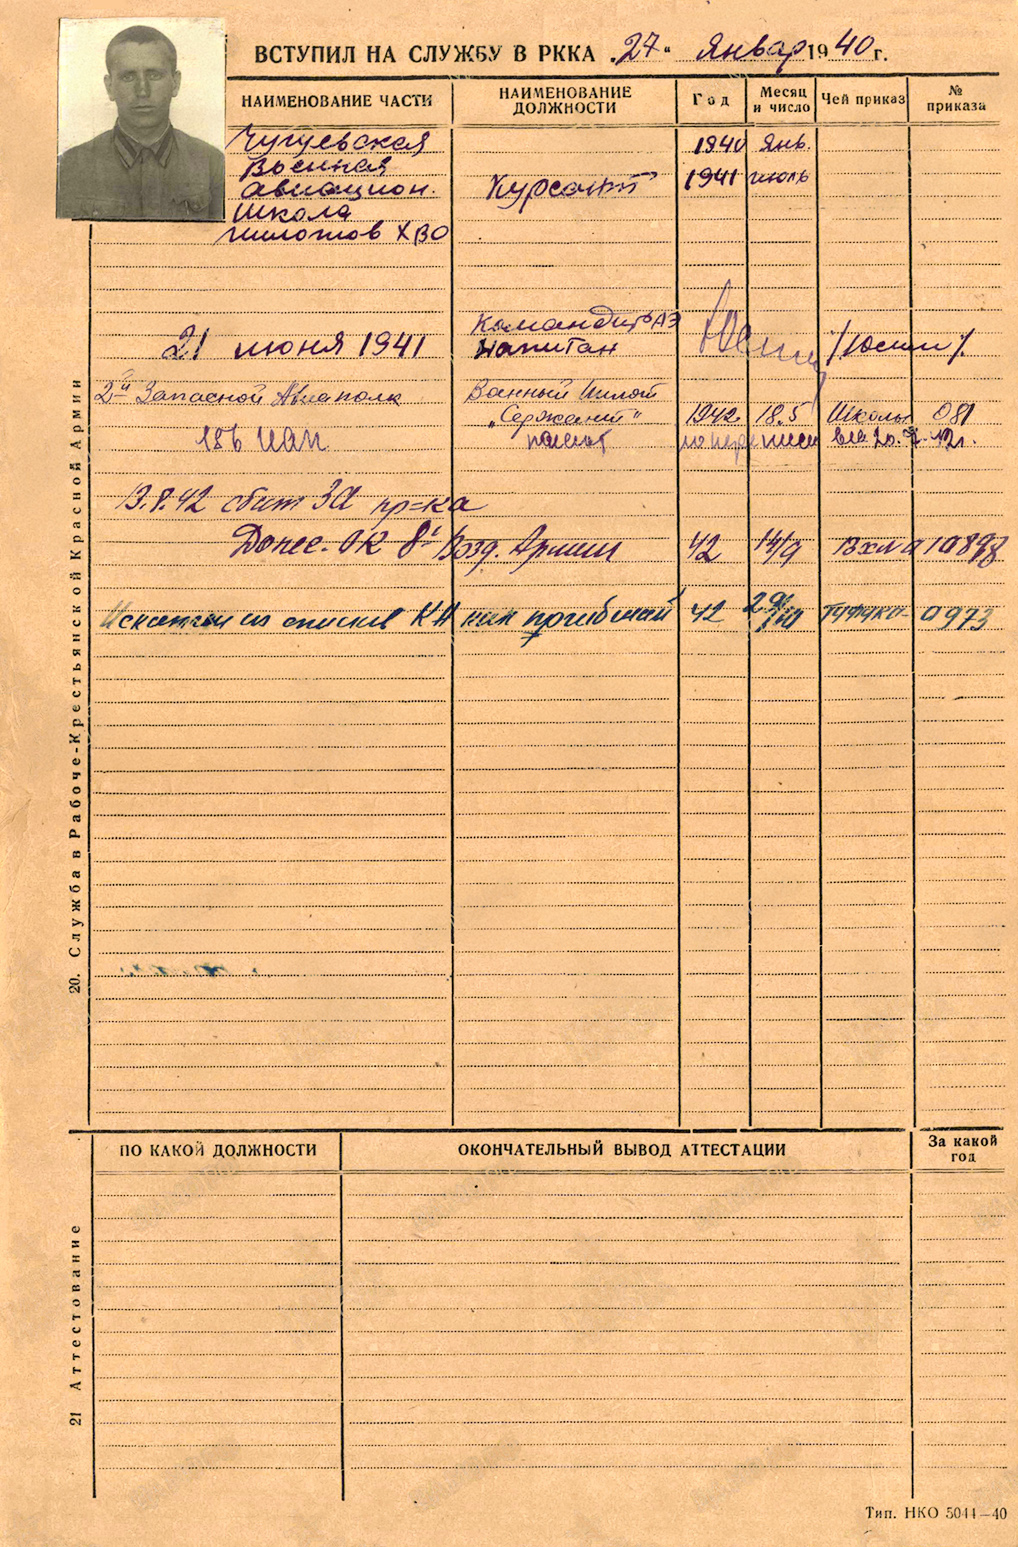 ВСТУПИЛ НА СЛУЖБУ В РККА „27“ Январ 1940 г.
НАИМЕНОВАНИЕ ЧАСТИ
НАИМЕНОВАНИЕ ДОЛЖНОСТИ
Год
Месяц и число
Чей приказ
№ приказа
Чугуевская 1940 Янв.
Военная
авиацион. Курсант 1941 июль
школа
пилотов ХВО
Командир АЭ
21 июня 1941 капитан /Юсим/
2й Запасной Авиаполк Военный Пилот
„Сержант“ 1942 18.5 Школы 081
пилот
13.8.42 сбит ЗА пр-ка
Донес. ОК 8й Возд. Армии 42 14/9 Вх № 10898
из списков КА как погибший 42 29/10 0973
20. Служба в Рабоче-Крестьянской Красной Армии
ПО КАКОЙ ДОЛЖНОСТИ
ОКОНЧАТЕЛЬНЫЙ ВЫВОД АТТЕСТАЦИИ
За какой год
21 Аттестование
Тип. НКО 5044—40